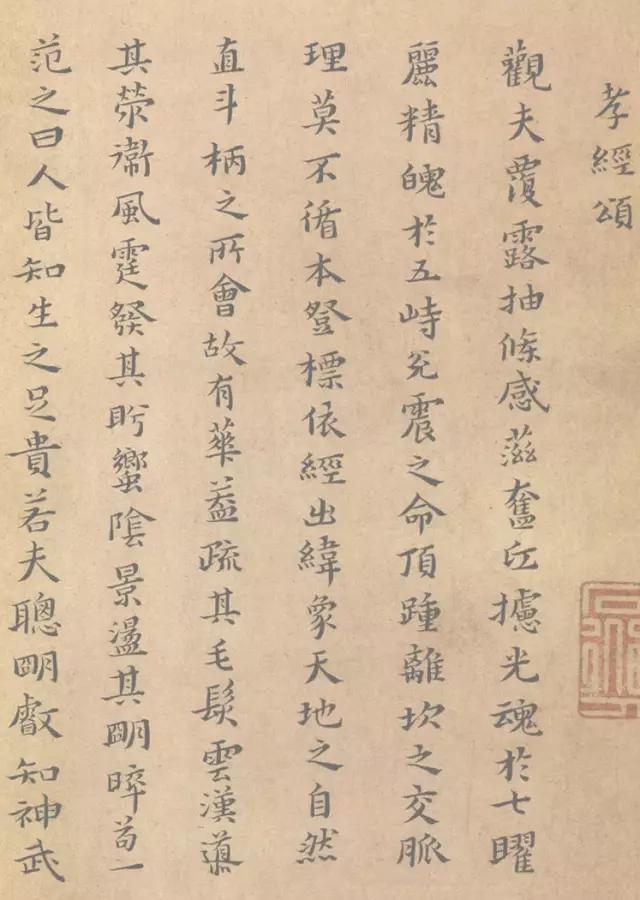 孝經頌
觀夫覆露抽條感滋奮攄光魂於七曜
麗精魄於五峙兌震之命頂踵離坎之交脈
理莫不循本登標依經出緯象天地之自然
直斗柄之所會故有華葢疏其毛髮雲漢導
其滎衞風霆發其肹蠁陰景盪其明晬苟一
范之曰人皆知生之足貴若夫聰明叡知神武